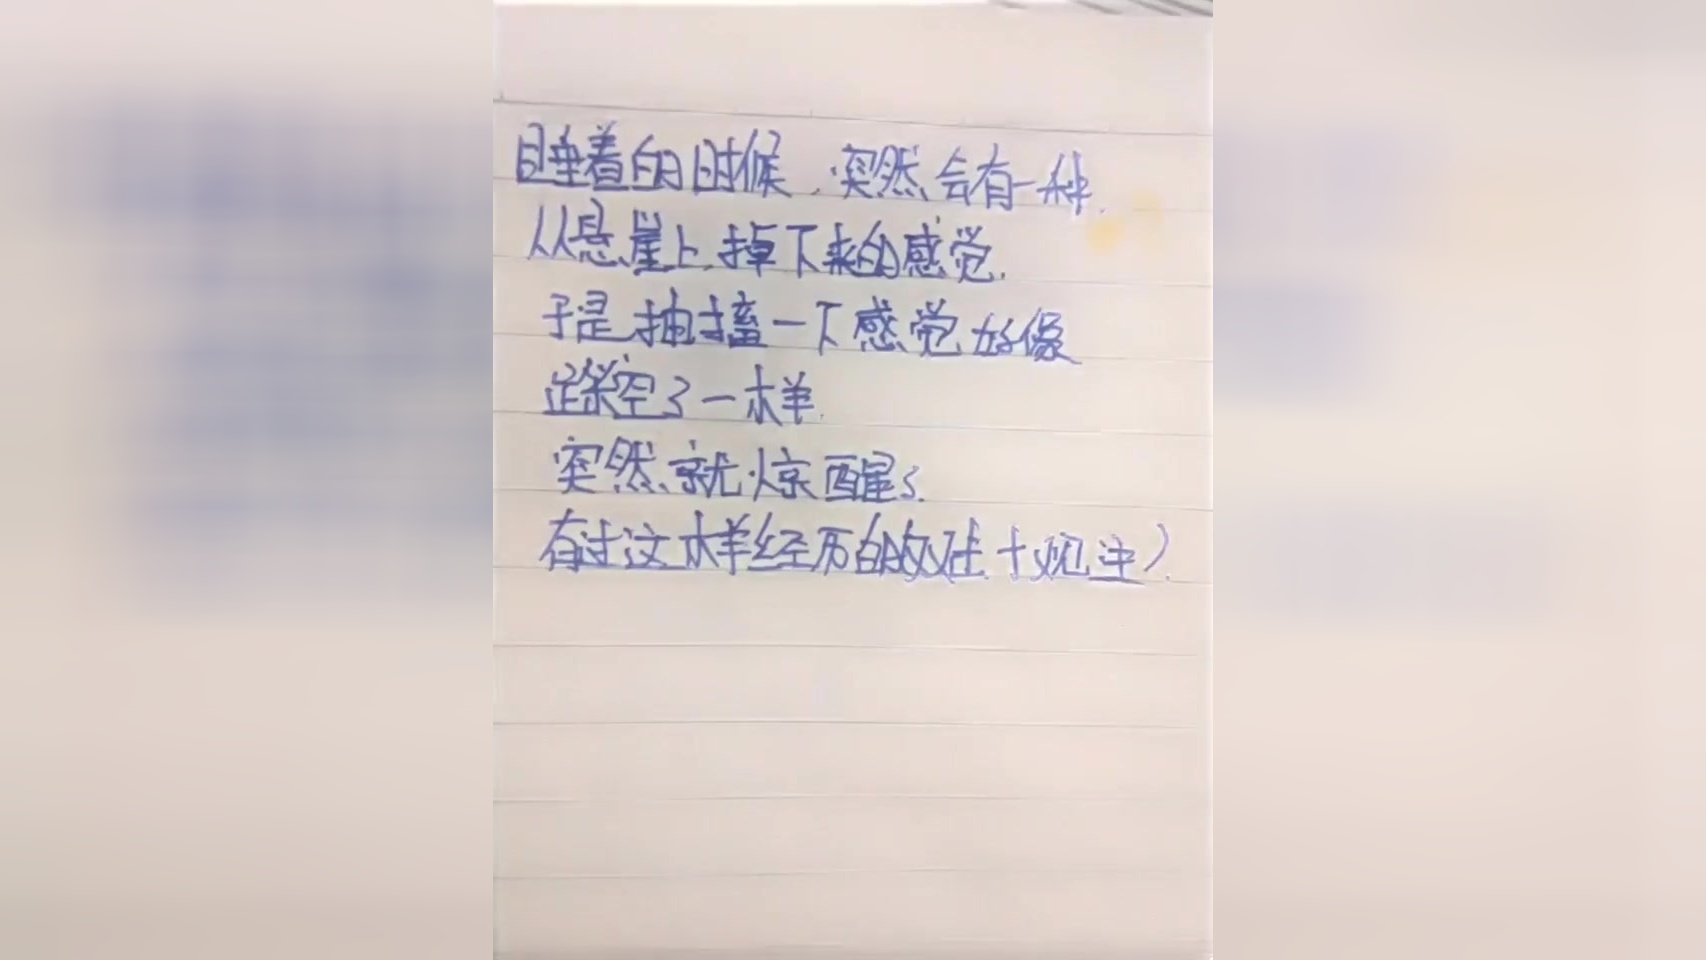 睡着的时候,突然会有一种
从悬崖上掉下来的感觉.
于是抽搐一下感觉好像
踩空了一样.
突然就惊醒了.
有过这样经历的双击+关注)